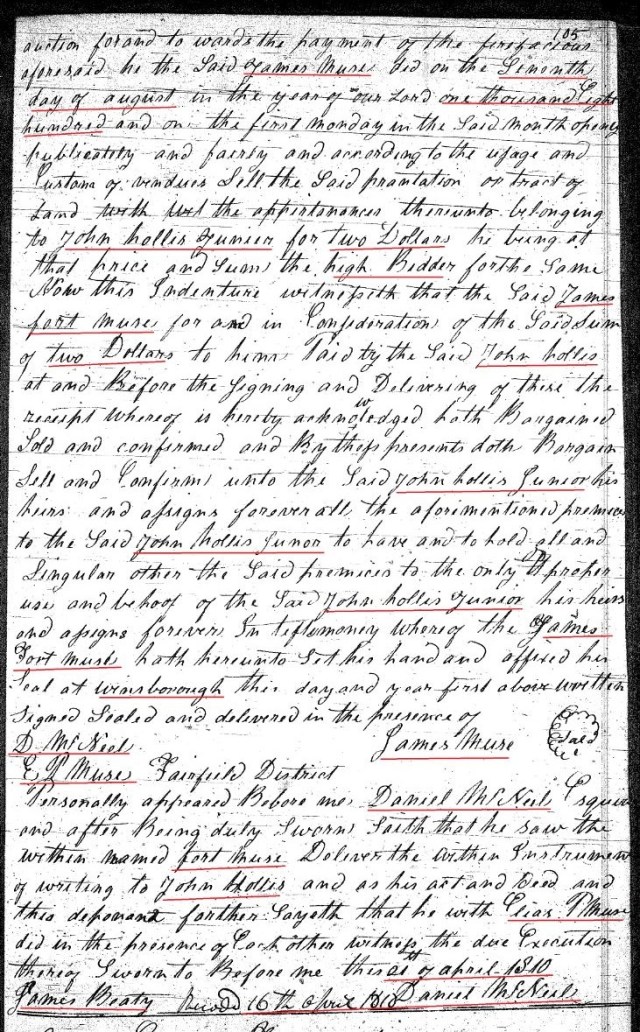 105
auction for and to wards the payment of the firefacious
aforesaid he the Said James Muse did on the Seventh
day of august in the year of our Lord one thousand Eight
hundred and on the first monday in the Said month openly
publicately and fairly and according to the usage and
Custom of vendues Sell the Said prantation or tract of
Land with the appertanances thereunto belonging
to John hollis Junier for two Dollars he being at
that price and Sum the high Bidder for the Same
Now this Indenture witnesseth that the Said James
fort muse for and in Consideration of the Said Sum
of two Dollars to him Paid by the Said John hollis
at and Before the Signing and Delivering of these the
receipt whereof is hereby acknowledged hath Bargained
Sold and confirmed and By thess presents doth Bargain
Sell and Confirm unto the Said John hollis Junior his
heirs and assigns forever all the aforementioned premices
to the Said John hollis Junor to have and to hold all and
Singular other the Said premices to the only proper
use and behoof of the Said John hollis Junior his heirs
and assigns forever In testemoney whereof the James
Fort muse hath hereunto Set his hand and affixed his
Seal at winsborough this day and year first above written
Signed Sealed and delivered in the presence of
D McNeel James Muse Seal
E P Muse Fairfield District
Personally appeared Before me Daniel McNeil Esquire
and after Being duly Sworn Saith that he saw the
within named fort muse Deliver the within Instrument
of writing to John Hollis and as his act and Deed and
this deponant forther Sayeth that he with Elias P Muse
did in the presence of Each other witness the due Execution
thereof Sworn to Before me this of april 1810
James Beaty Recvd 16th April 1810 Daniel McNeil